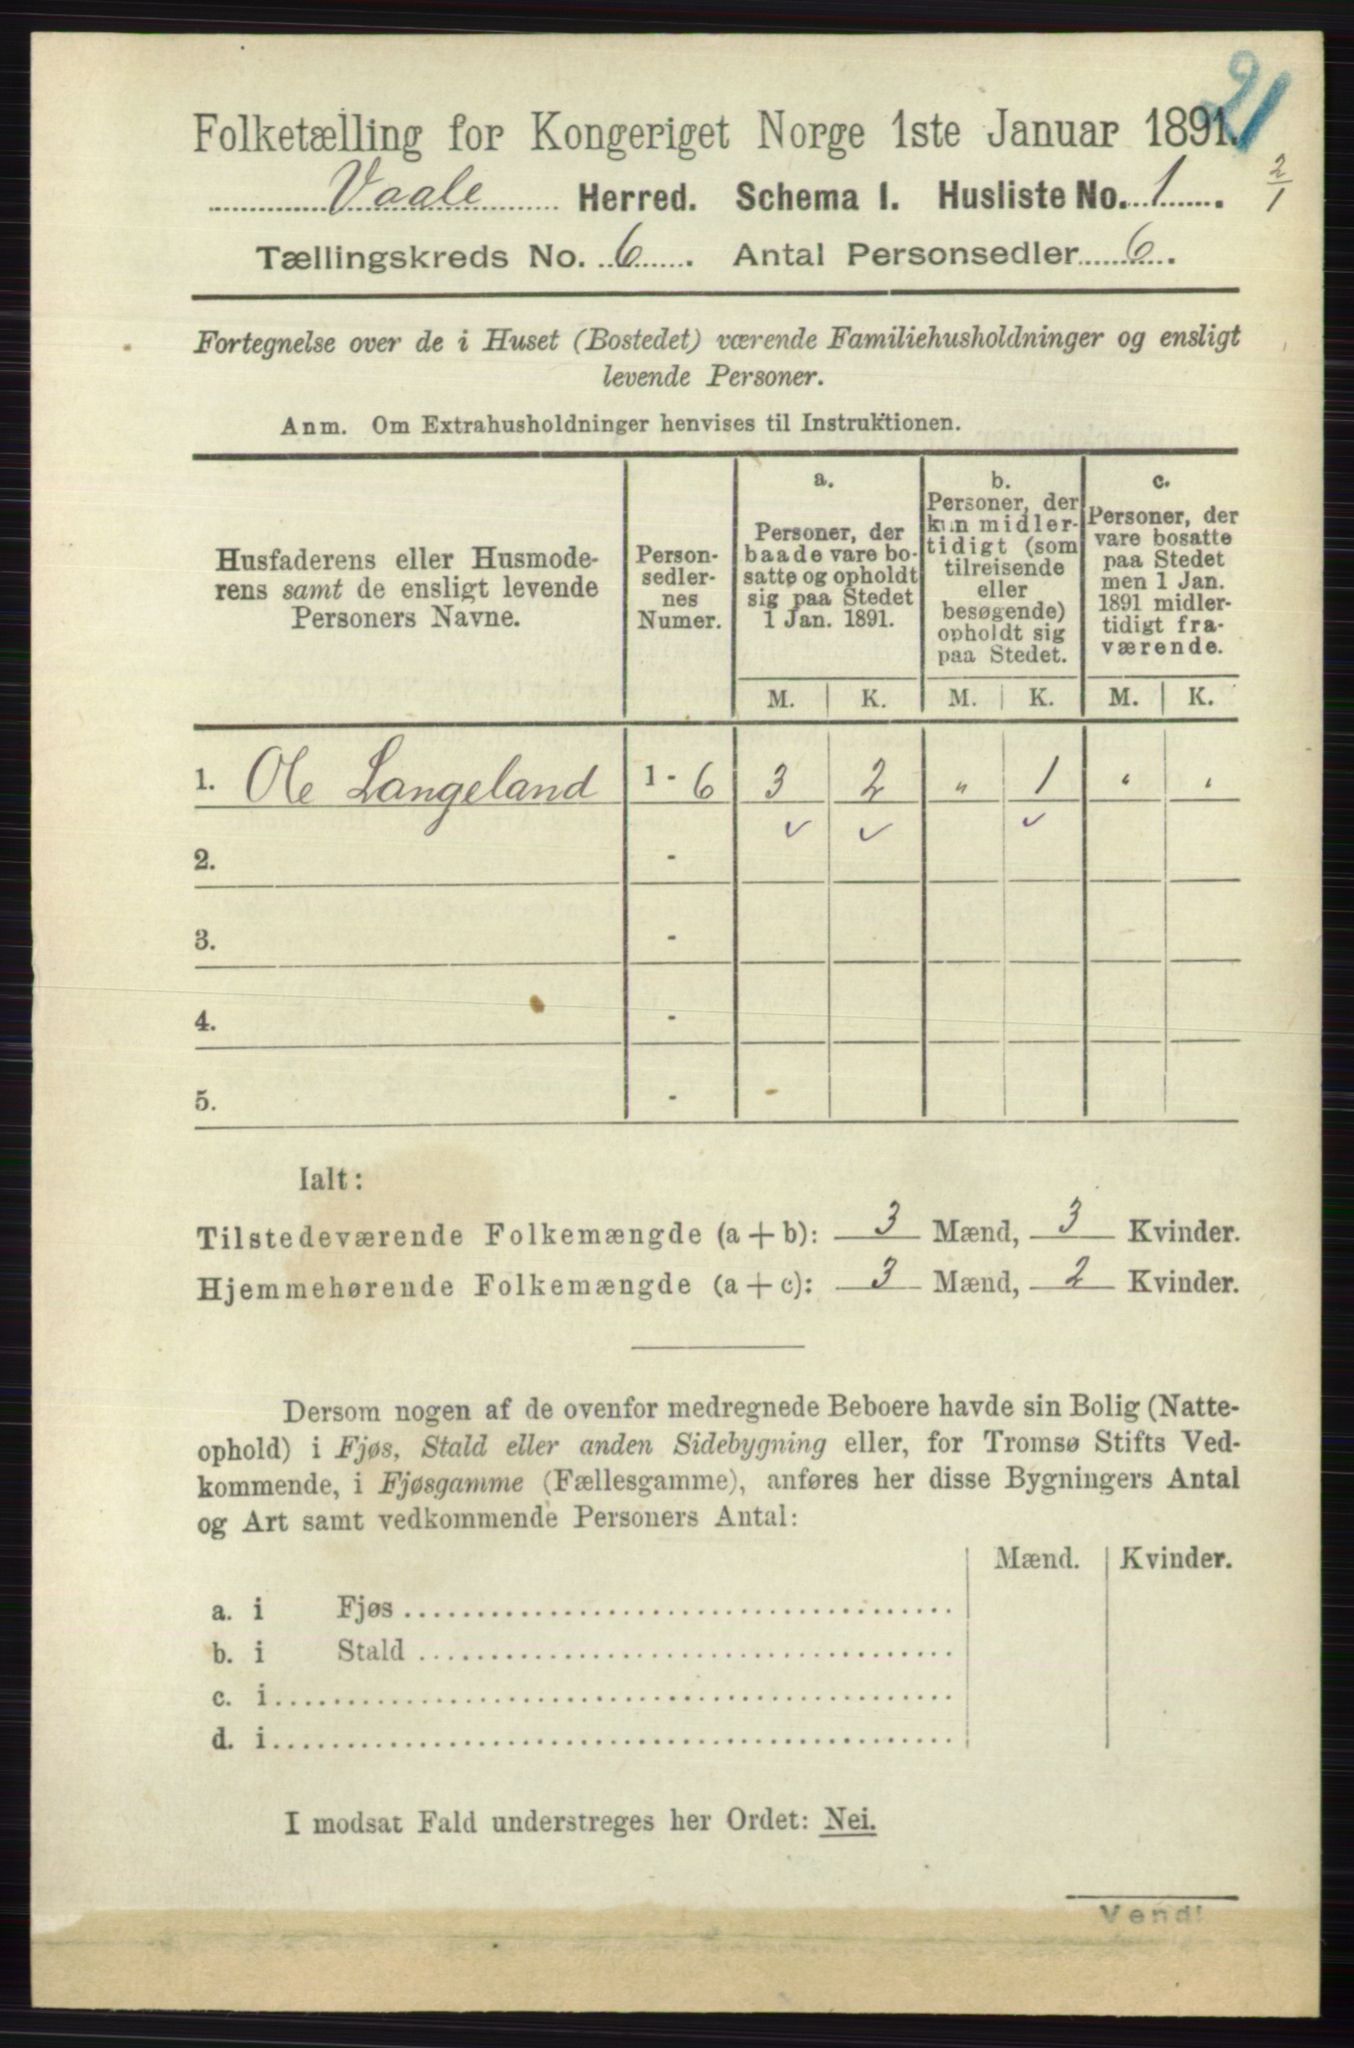 21
Folketælling for Kongeriget Norge 1ste Januar 1891.
Vaale Herred. Schema I. Husliste No. 1.
2/1
Tællingskreds No. 6. Antal Personsedler 6.
Fortegnelse over de i Huset (Bostedet) værende Familiehusholdninger og ensligt
levende Personer.
Anm. Om Extrahusholdninger henvises til Instruktionen.
Husfaderens eller Husmode-
rens samt de ensligt levende
Personers Navne.
Person-
sedler-
nes
Numer.
a.
Personer, der
baade vare bo-
satte og opholdt
sig paa Stedet
1 Jan. 1891.
b.
Personer, der
kun midler-
tidigt (som
tilreisende
eller
besøgende)
opholdt sig
paa Stedet.
c.
Personer, der
vare bosatte
paa Stedet
men 1 Jan.
1891 midler-
tidigt fra-
værende.
M. K. M. K. M. K.
1. Ole Langeland 1 - 6 3 2 " 1 " "
✓ ✓ ✓
2. -
3. -
4. -
5. -
Ialt:
Tilstedeværende Folkemængde (a + b): 3 Mænd, 3 Kvinder.
Hjemmehørende Folkemængde (a + c): 3 Mænd, 2 Kvinder.
Dersom nogen af de ovenfor medregnede Beboere havde sin Bolig (Natte-
ophold) i Fjøs, Stald eller anden Sidebygning eller, for Tromsø Stifts Ved-
kommende, i Fjøsgamme (Fællesgamme), anføres her disse Bygningers Antal
og Art samt vedkommende Personers Antal:
Mænd. Kvinder.
a. i Fjøs
b. i Stald
c. i
d. i
I modsat Fald understreges her Ordet: Nei.
Vend!